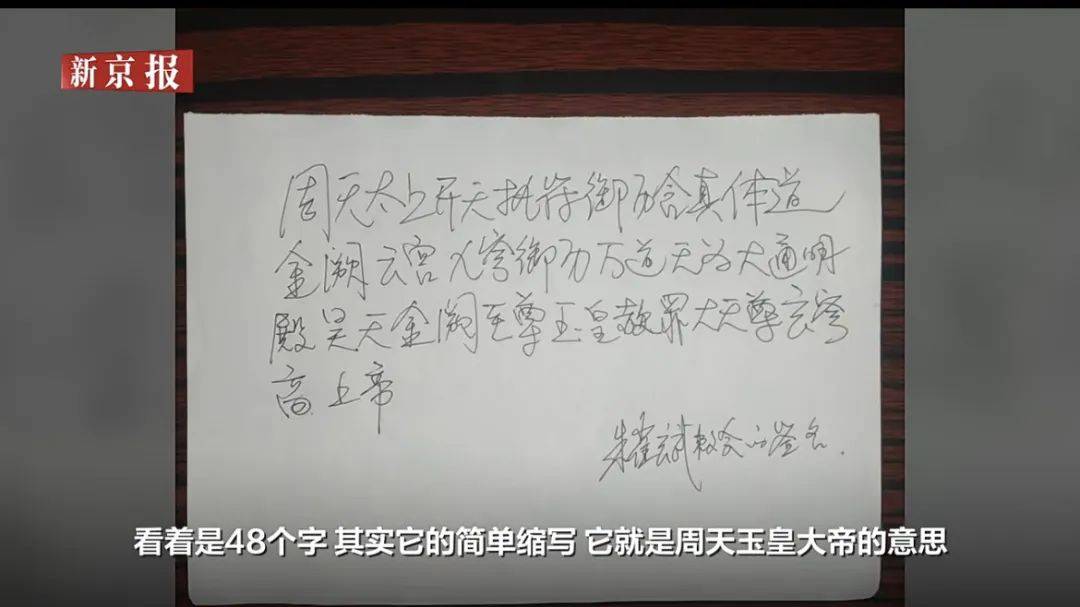 新京报
周天太上开天执符御历含真体道
金阙云宫九穹御历万道无为大通明
殿昊天金阙至尊玉皇赦罪大天尊玄穹
高上帝
朱雀玄武敕令的签名.
看着是48个字 其实它的简单缩写 它就是周天玉皇大帝的意思